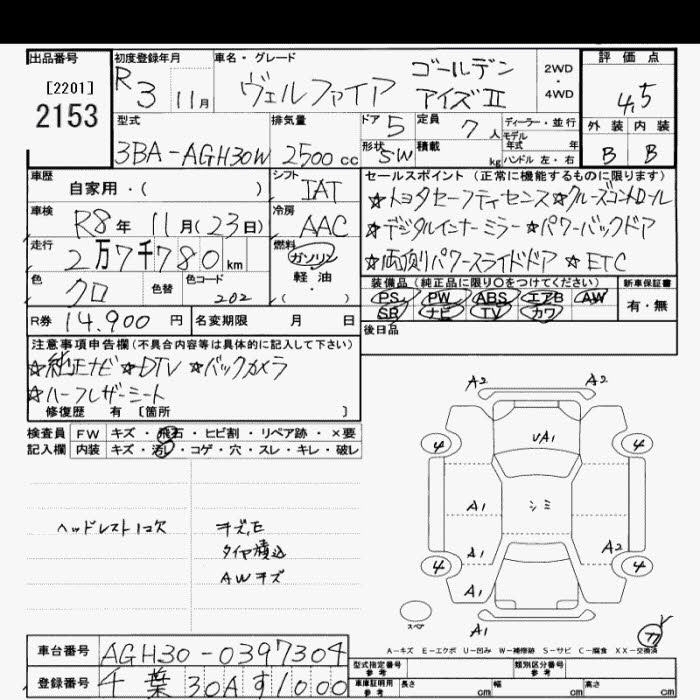 出品番号
[2201]
2153
初度登録年月
R3 11月
車名・グレード
ヴェルファイア ゴールデン
アイズⅡ
2WD
・
4WD
評価点
4.5
外装 内装
B B
型式
3BA-AGH30W
排気量
2500cc
ドア 5
形状 SW
定員 7人
積載 kg
ディーラー・並行
モデル
年式 年
ハンドル 左・右
車歴
自家用・( )
シフト
IAT
車検
R8年 11月(23日)
冷房
AAC
走行
2万7千780km
燃料
ガソリン
軽・油
( )
色
クロ
色替
色コード
202
R券 14,900円
名変期限 月 日
セールスポイント (正常に機能するものに限ります)
☆トヨタセーフティセンス☆クルーズコントロール
☆デジタルインナーミラー☆パワーバックドア
☆両側パワースライドドア ☆ETC
装備品 (純正品に限り○をつけてください)
PS PW ABS エアB AW
SR ナビ TV カワ
新車保証書
有・無
後日品
注意事項申告欄(不具合内容等は具体的に記入して下さい)
☆純正ナビ ☆DTV ☆バックカメラ
☆ハーフレザーシート
修復歴 有〔箇所 〕
検査員 FW キズ・飛石・ヒビ割・リペア跡・×要
記入欄 内装 キズ・汚レ・コゲ・穴・スレ・キレ・破レ
ヘッドレスト1コ欠
キズ,E
タイヤ積込
AWキズ
A2 A2
4 UA1 4
A1 シミ
A1 A2
4 A1 4
スペア
A1
A-キズ E-エクボ U-凹み W-補修跡 S-サビ C-腐食 XX-交換済
車台番号 AGH30-0397304
登録番号 千葉 30A す1000
型式指定番号
参考
類別区分番号
参考
車庫証明用
参考
長さ cm 幅 cm 高さ cm